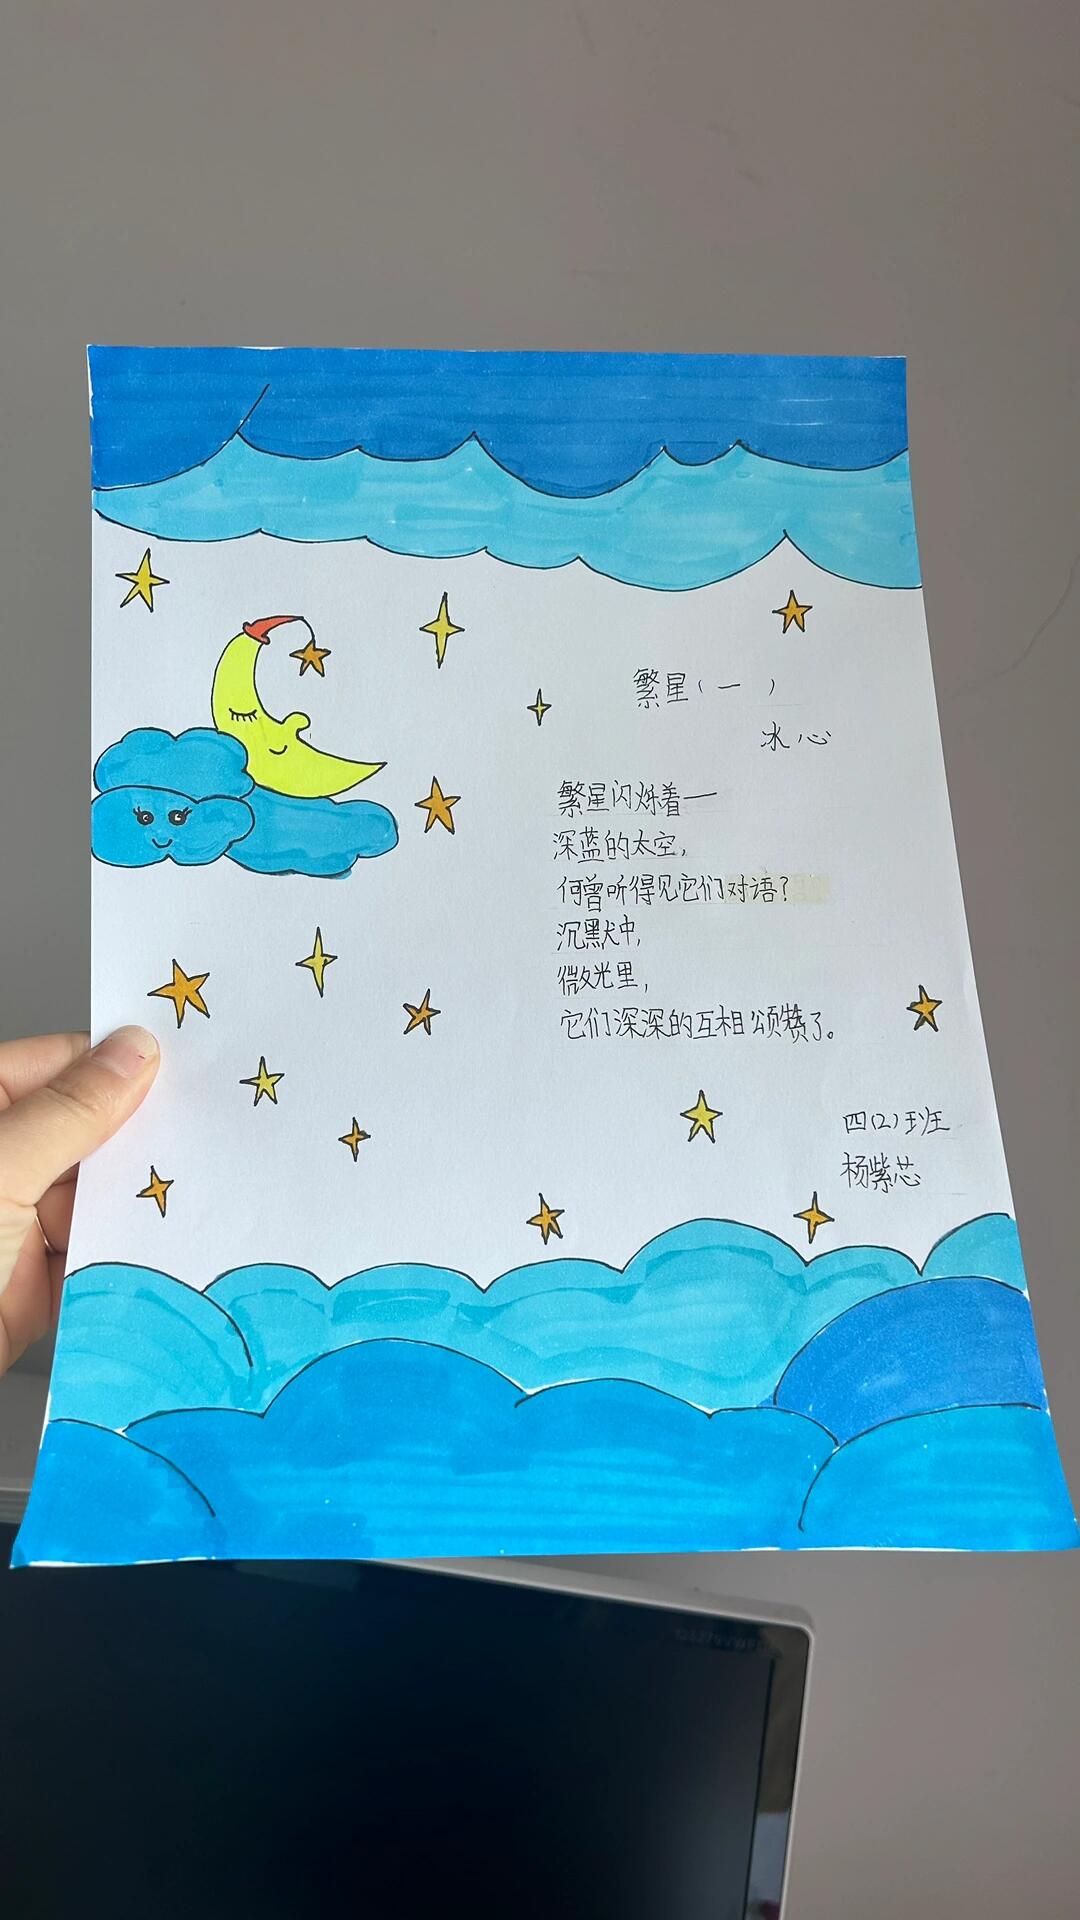 繁星（一）
冰心
繁星闪烁着一
深蓝的太空，
何曾听得见它们对语？
沉默中，
微光里，
它们深深的互相颂赞了。
四(2)班
杨紫芯